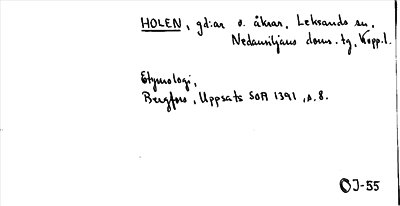 HOLEN, gd:ar o. åkrar, Leksands sn,
Nedansiljans doms.tg, Kopp.l.
Etymologi,
Bergfors, Uppsats SOA 1391, s. 8.
OJ-55